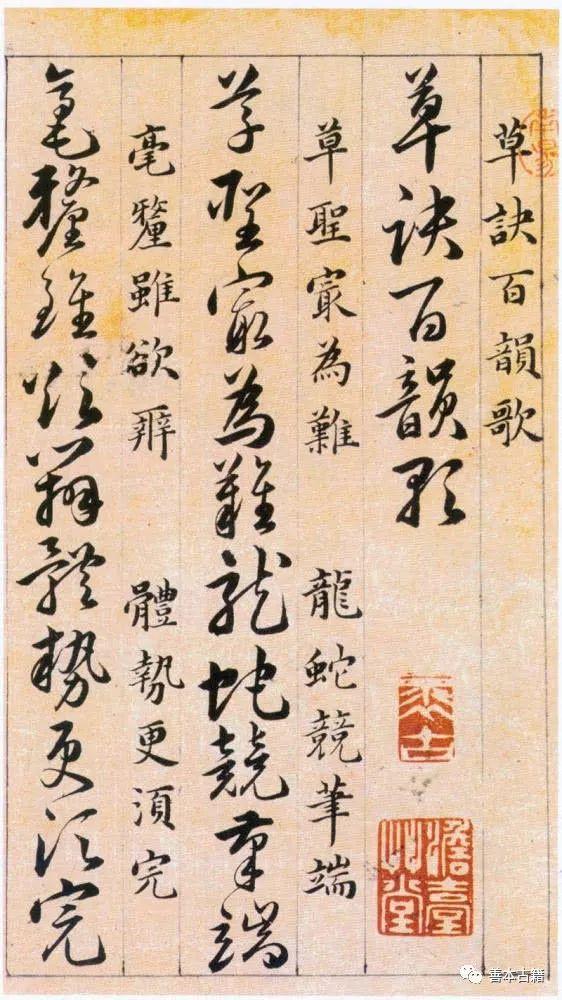 草訣百韻歌
草訣百韻歌
草聖㝡為難 龍蛇競筆端
草聖㝡為難龍蛇競筆端
毫釐雖欲辨 體勢更湏完
毫釐雖欲辨體勢更須完
善本古籍